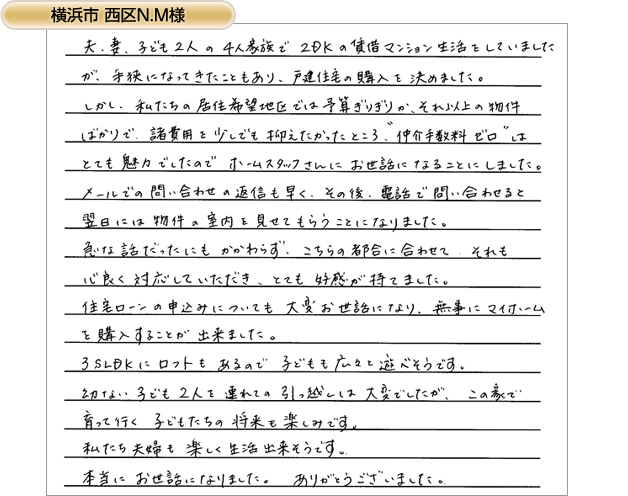 横浜市 西区N.M様
夫、妻、子ども2人の4人家族で2DKの賃借マンション生活をしていました
が、手狭になってきたこともあり、戸建住宅の購入を決めました。
しかし、私たちの居住希望地区では予算ぎりぎりか、それ以上の物件
ばかりで、諸費用を少しでも抑えたかったところ、"仲介手数料ゼロ"は
とても魅力でしたのでホームスタッフさんにお世話になることにしました。
メールでの問い合わせの返信も早く、その後、電話で問い合わせると
翌日には物件の案内を見せてもらうことになりました。
急な話だったにもかかわらず、こちらの都合に合わせて、それも
心良く対応していただき、とても好感が持てました。
住宅ローンの申込みについても大変お世話になり、無事にマイホーム
を購入することが出来ました。
3SLDKにロフトもあるので子どもも広々と遊べそうです。
幼ない子ども2人を連れての引っ越しは大変でしたが、この家で
育って行く子どもたちの将来も楽しみです。
私たち夫婦も楽しく生活出来そうです。
本当にお世話になりました。 ありがとうございました。